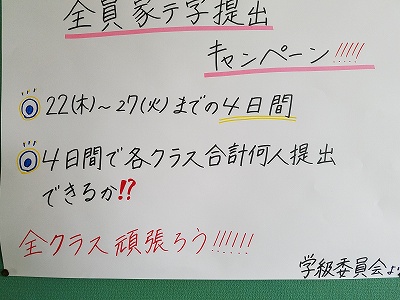 全員家テ学提出
キャンペーン!!!!!
22(木)～27(火)までの4日間
4日間で各クラス合計何人提出
できるか!?
全クラス頑張ろう!!!!!!
学級委員会より